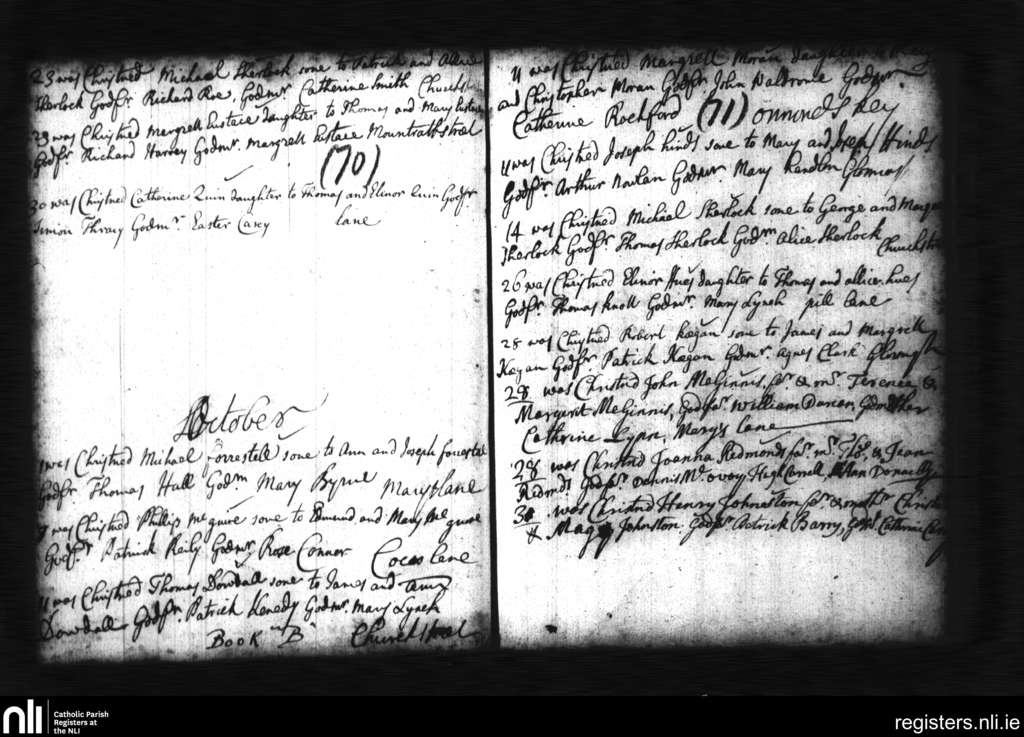 23 was Christned Michael Sherlock sone to Patrick and Allice
Sherlock Godfr. Richard Roe, Godmr. Catherine Smith Churchst
29 was Christned Margrett Eustace daughter to Thomas and Mary Eustace
Godfr. Richard Harvey Godmr. Margrett Eustace Mountrathstreet
(70)
30 was Christned Catherine Quin daughter to Thomas and Elinor Quin Godfr.
Simon Godmr. Easter Casey lane
October
was Christned Michael Forrestell sone to Ann and Joseph forrestell
Godfr. Thomas Hall Godm Mary Byrne Maryslane
9 was Christned Phillip Mc guire sone to Edmund and Mary Mc guire
Godfr. Patrick Reily Godmr. Rose Connor Cocas lane
11 was Christned Thomas Dowdall sone to James and
Dowdall Godfr. Patrick Kenedy Godmr. Mary Lynch
Book "B" Churchstreet
11 was Christned Margrett Moran daughter to
and Christopher Moran Godfr. John Waldrone Godmr
Catherine Rochford (71) ormonds key
11 was Christned Joseph hinds sone to Mary and Joseph Hinds
Godfr. Arthur Nowlan Godmr. Mary
14 was Christned Michael Sherlock sone to George and
Sherlock Godfr. Thomas Sherlock Godm Alice Sherlock
Churchstre
26 was Christned Elinor Hues daughter to Thomas and allice hues
Godfr. Thomas Knott Godmr. Mary Lynch pill lane
28 was Christned Robert Keegan sone to James and Margrett
Keagan Godfr. Patrick Keagan Godmr. Agnes Clark
28 was Christnd John McGinnis, fr. & mr. Terence &
Margerit McGinnis, Godfr. William Darcan, Godmther
Catherine Lynn, Mary's Lane
28 was Christnd Joanna Redmonds fr. mr. Tho. & Jean
Redmds Godfr. Dennis Mc. Hugh
30 was Christnd Henry Johnston fr. & mothr. Christ
& Johnston Godfr. Patrick Barry, Godm. Catherine
nli
Catholic Parish
Registers at
the NLI
registers.nli.ie